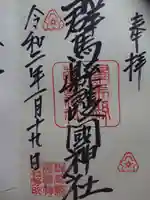 奉拝
群馬縣護國神社
令和二年一月十九日